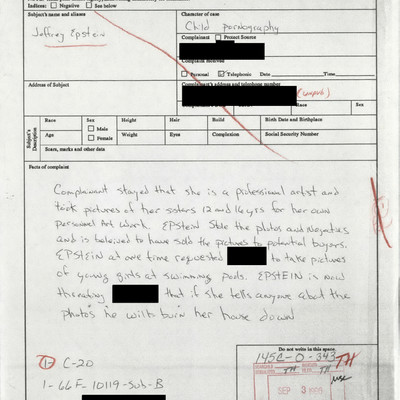 Indices: ☐ Negative ☐ See below
Subject's name and aliases
Character of case
Jeffrey Epstein
Child pornography
Complainant ☐ Protect Source
Complaint received
☐ Personal ☑ Telephonic Date Time
Address of Subject
Complainant's address and telephone number
Race Sex
Subject's Description
Race Sex Height Hair Build Birth Date and Birthplace
☐ Male
☐ Female
Age Weight Eyes Complexion Social Security Number
Scars, marks and other data
Facts of complaint
Complainant stayed that she is a professional artist and
took pictures of her sisters 12 and 16 yrs for her own
personal Art work. EPStein Stole the photos and Negatives
and is beleived to have sold the pictures to potential buyers.
EPSTEIN at one time requested to take pictures
of young girls at swimming pools. EPSTEIN is now
threating that if she tells anyone about the
photos he will burn her house down
Do not write in this space.
1- C-20
145C-0-343
TH
1- 66F-10119-Sub-B
TH TH
SEP 3 1996